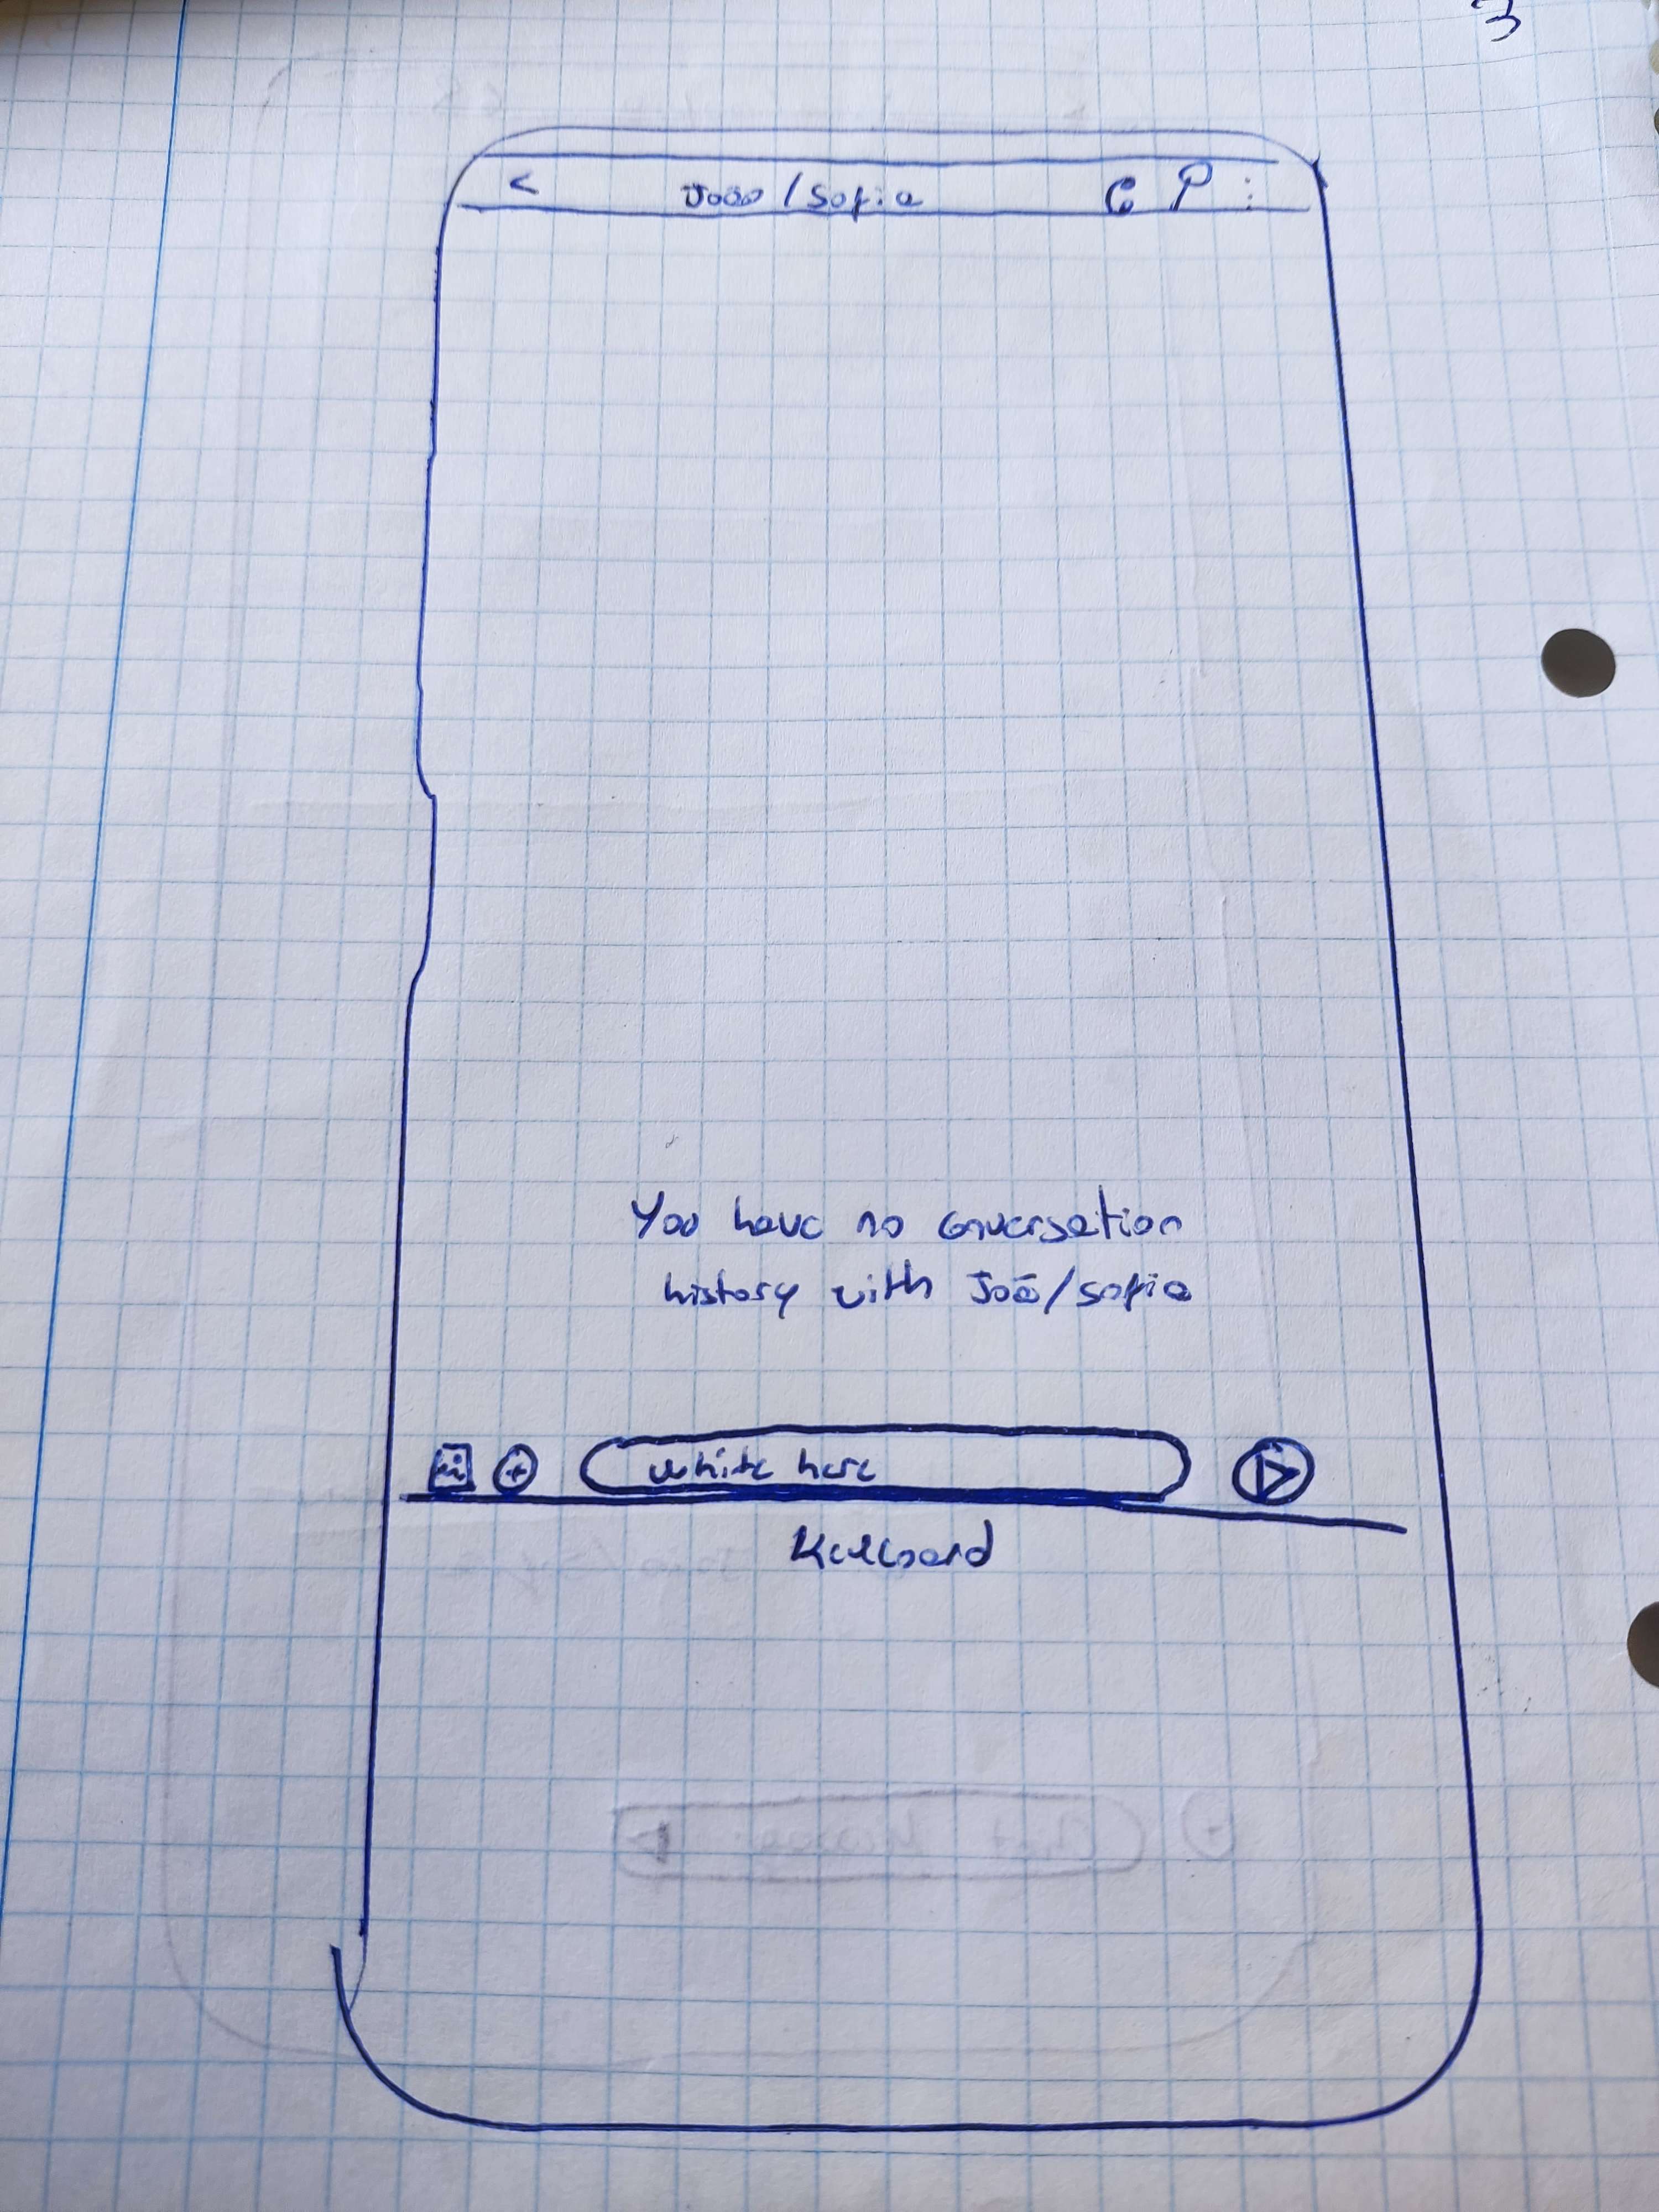 3
< João/Sofia
You have no conversation
history with João/Sofia
white here